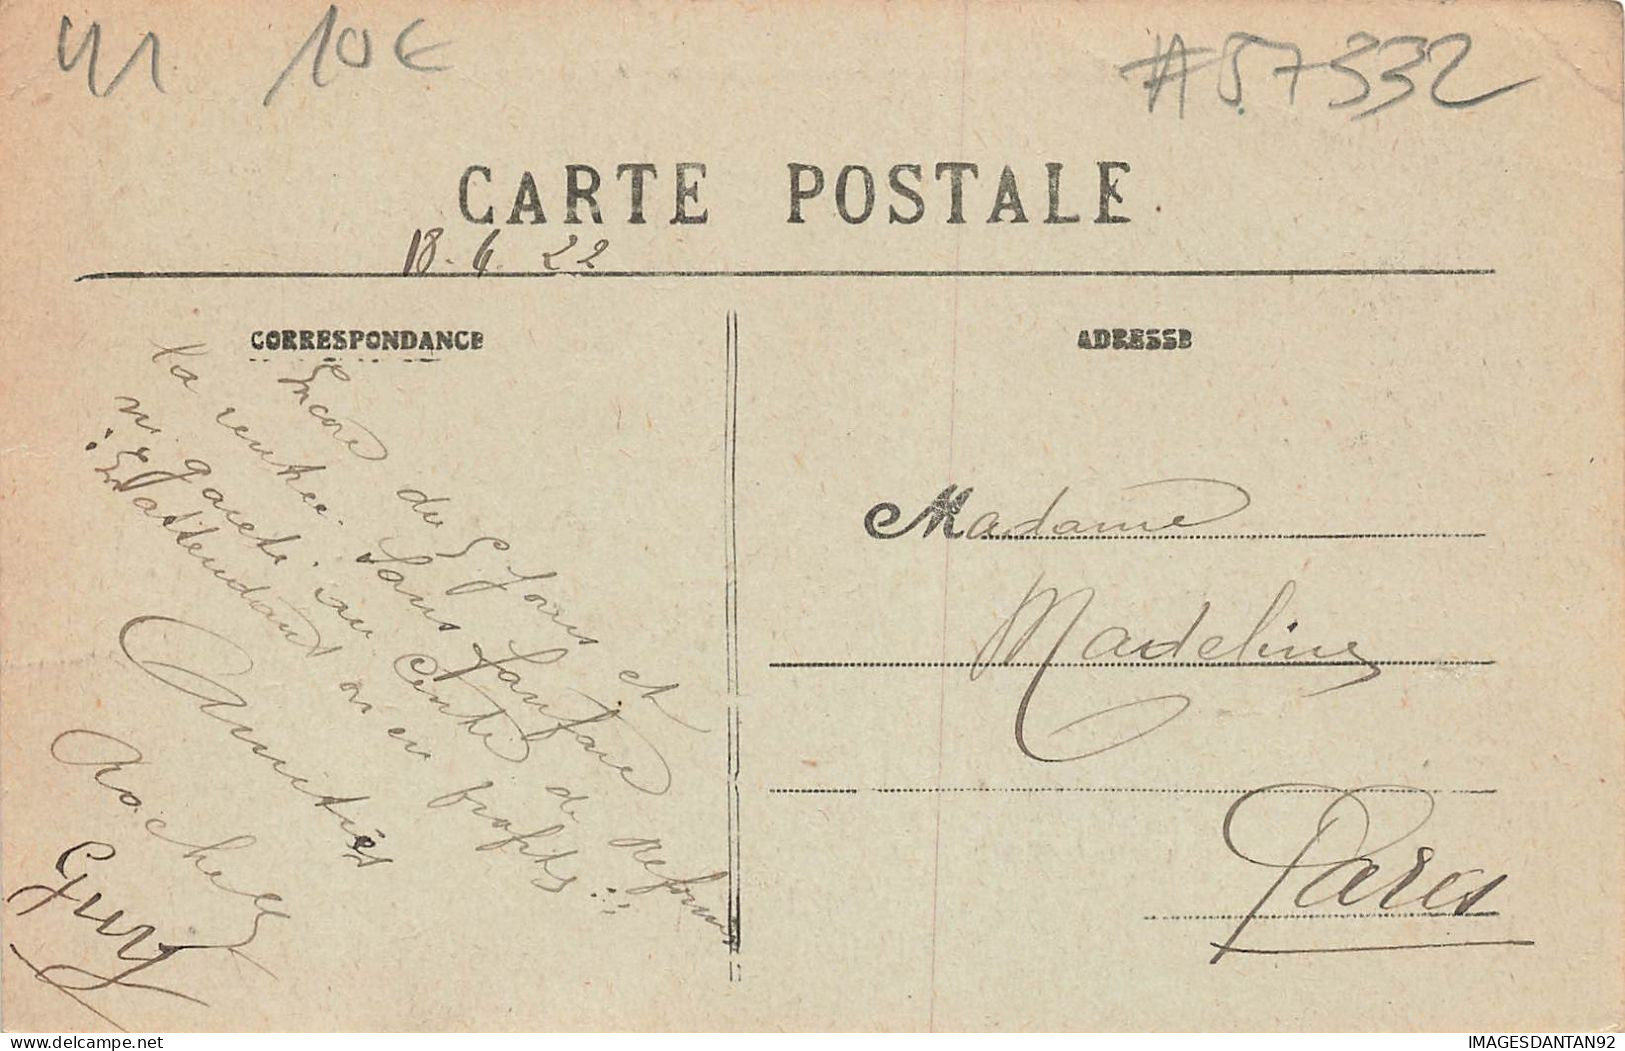 41 10€ #57332
CARTE POSTALE
18.6.22
CORRESPONDANCE
ADRESSE
Encore du 5 jours et
la rentrée. Sans fanfare
ni au Centre de Réforme
Enattendant on en profits...
Amitiés
Guy
Madame
Madeline
Paris
IMAGESDANTAN92